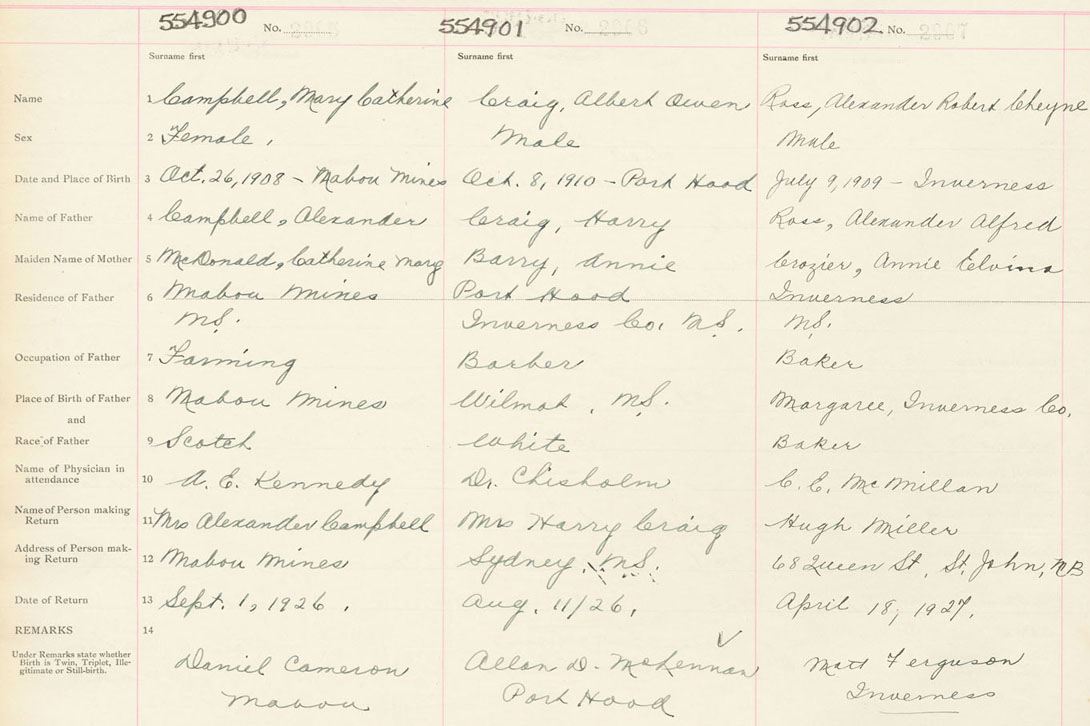 554900 No. 554901 No. 554902 No. 2887
Surname first Surname first Surname first
Name 1 Campbell, Mary Catherine Craig, Albert Owen Ross, Alexander Robert Cheyne
Sex 2 Female, Male Male
Date and Place of Birth 3 Oct. 26, 1908 - Mabou Mines Oct. 8, 1910 - Port Hood July 9, 1909 - Inverness
Name of Father 4 Campbell, Alexander Craig, Harry Ross, Alexander Alfred
Maiden Name of Mother 5 McDonald, Catherine Mary Barry, Annie Crozier, Annie Elvina
Residence of Father 6 Mabou Mines Port Hood Inverness
N.S. Inverness Co, N.S. N.S.
Occupation of Father 7 Farming Barber Baker
Place of Birth of Father 8 Mabou Mines Wilmot, N.S. Margaree, Inverness Co.
and
Race of Father 9 Scotch White Baker
Name of Physician in
attendance 10 A. E. Kennedy Dr. Chisholm C. E. McMillan
Name of Person making
Return 11 Mrs Alexander Campbell Mrs Harry Craig Hugh Miller
Address of Person mak-
ing Return 12 Mabou Mines Sydney, N.S. 68 Queen St, St. John, NB
Date of Return 13 Sept. 1, 1926. Aug. 11/26. April 18, 1927.
REMARKS 14
Under Remarks state whether
Birth is Twin, Triplet, Ille-
gitimate or Still-birth.
Daniel Cameron Allan D. McLennan Matt Ferguson
Mabou Port Hood Inverness